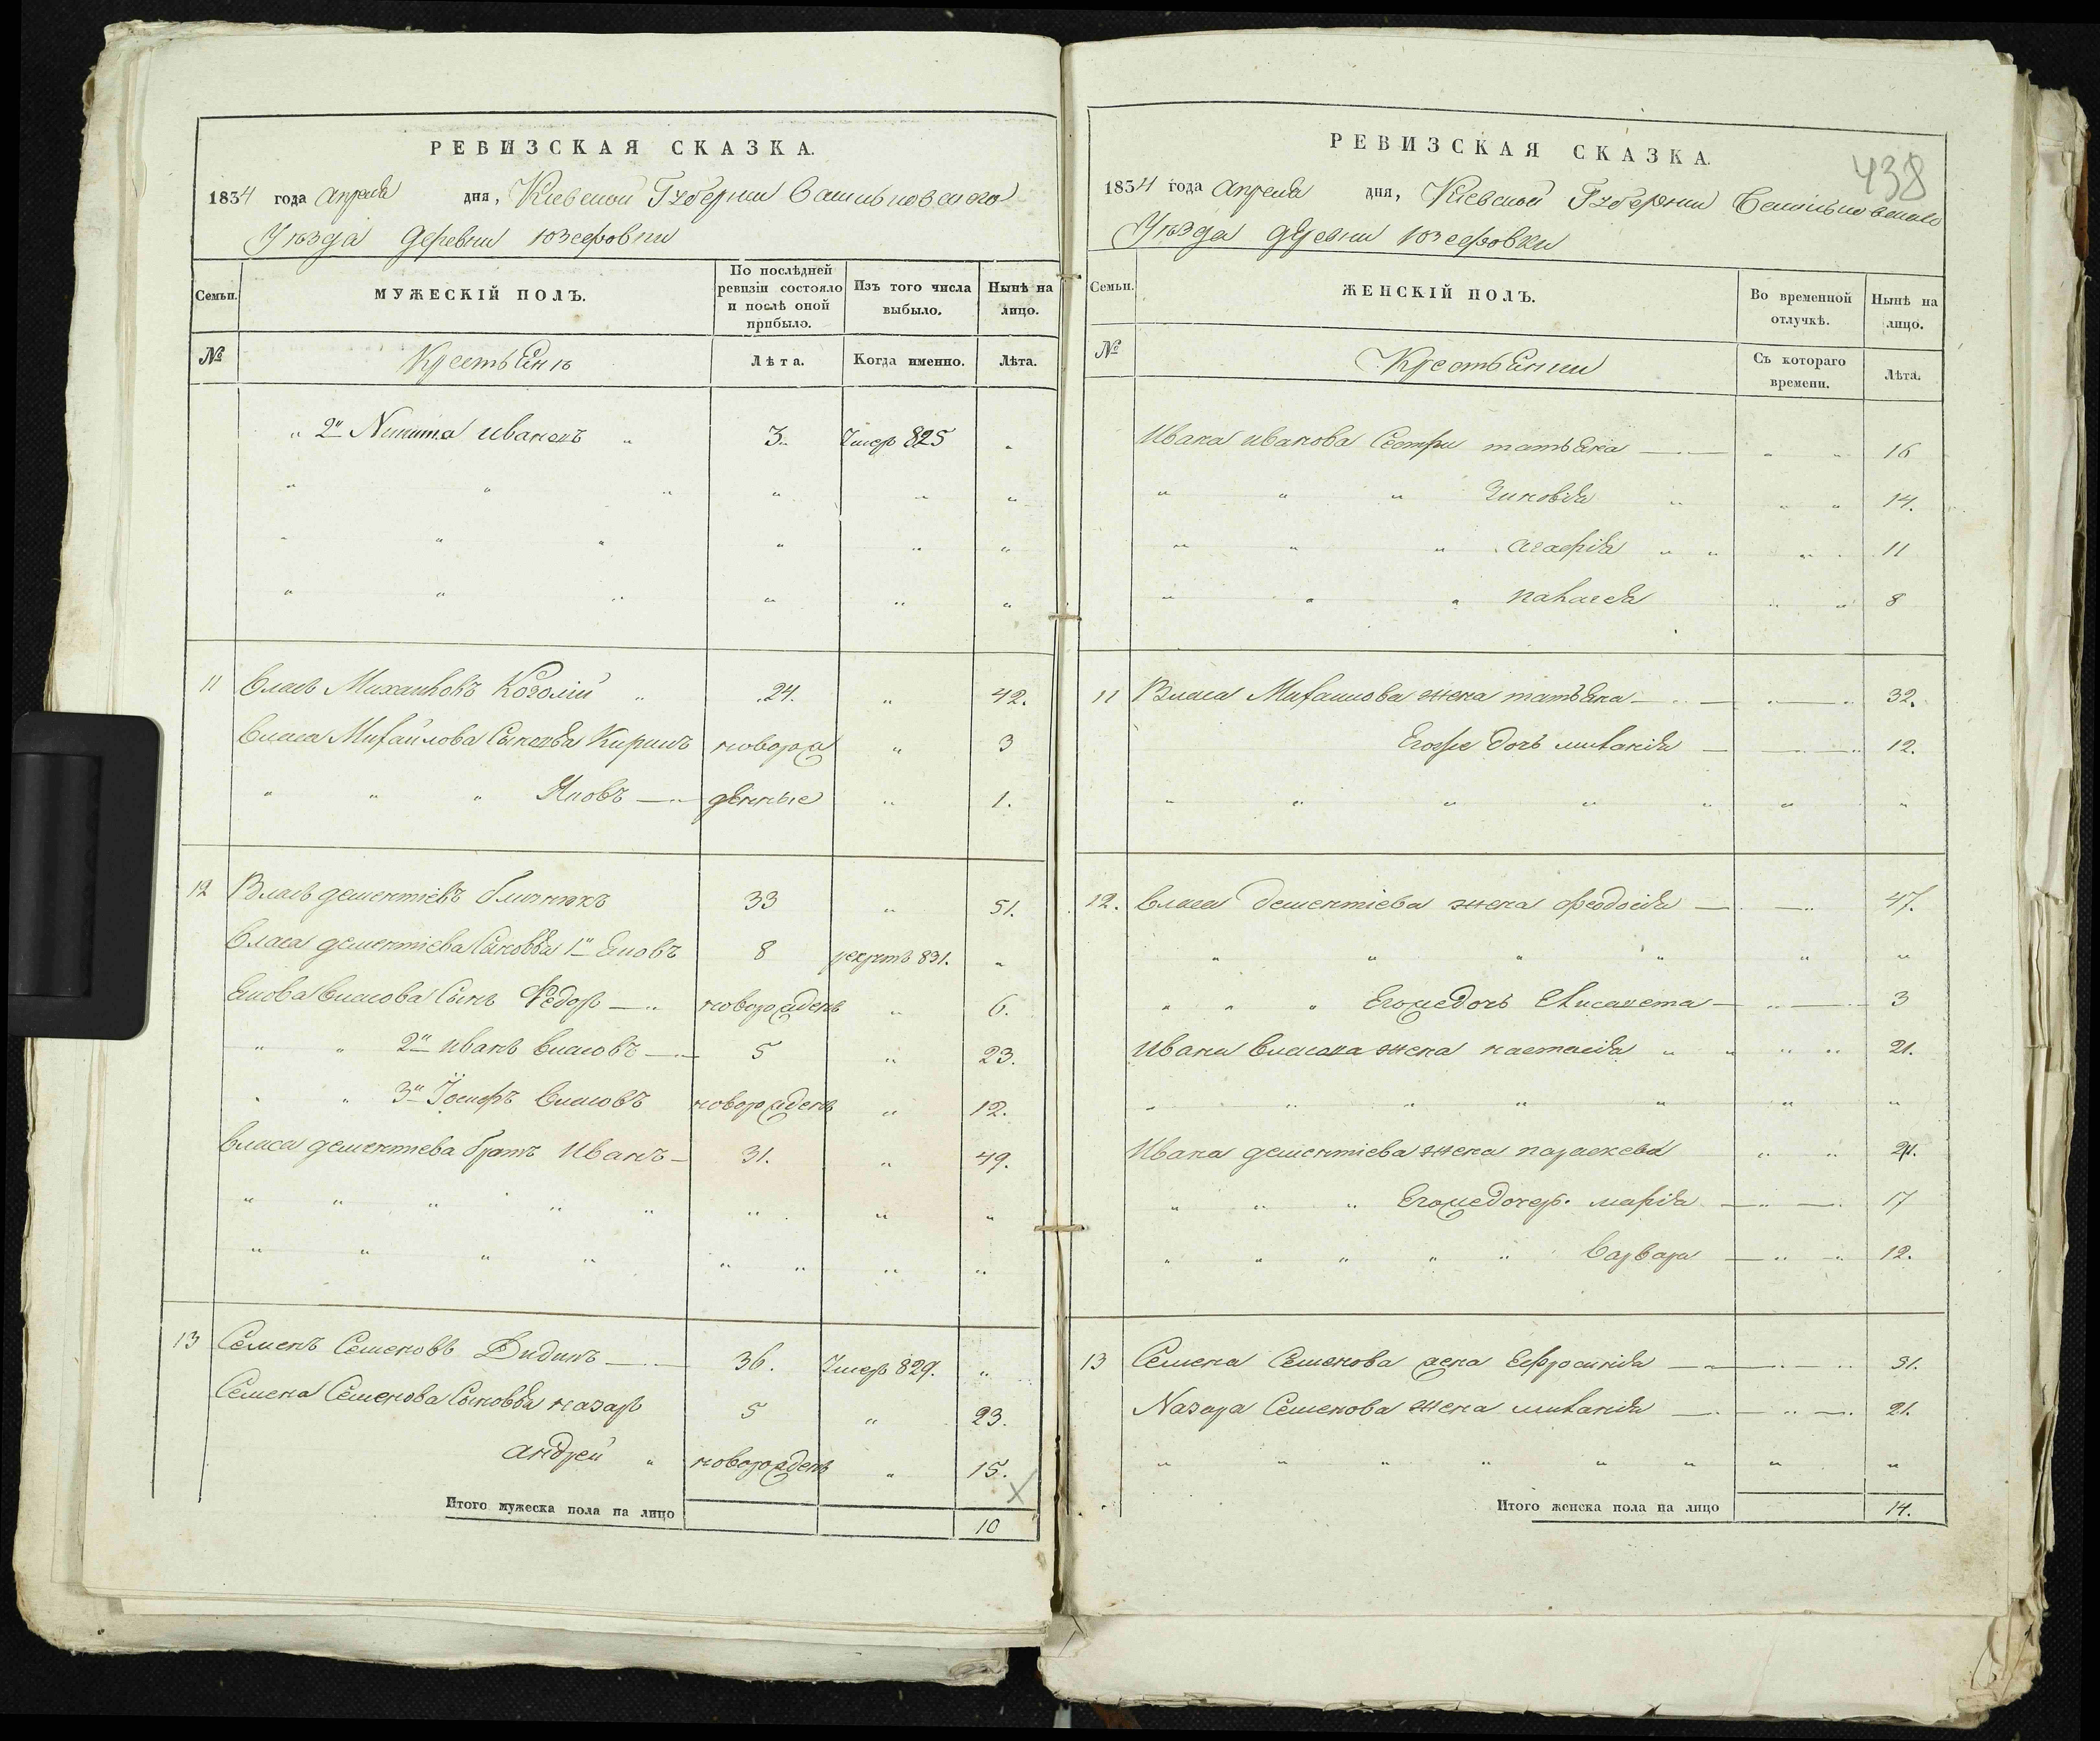 РЕВИЗСКАЯ СКАЗКА.
1834 года Апреля дня, Кіевской Губерніи Васильковскаго
Уѣзда деревни Юзефовки
Семьи.
МУЖЕСКІЙ ПОЛЪ.
По послѣдней ревизіи состояло и послѣ оной прибыло.
Изъ того числа выбыло.
Нынѣ на лицо.
№
Крестьянъ
Лѣта.
Когда именно.
Лѣта.
„ 2й Никита Ивановъ „ 3 „ Умер 825 „
11 Власъ Михайловъ Коголій „ 24. „ 42.
Власа Михайлова Сыновья Кирилъ новоро „ 3
„ „ „ Яковъ жденные „ 1.
12 Власъ дементіевъ 33 „ 51.
Власа дементіева Сыновья 1й Яковъ 8 рекрутъ 831. „
Якова Власова Сынъ Федоръ новорожденъ „ 6.
„ „ 2й Иванъ Власовъ 5 „ 23.
„ „ 3й Іосифъ Власовъ новорожденъ „ 12.
Власа дементіева братъ Иванъ 31. „ 49.
13 Семенъ Семеновъ Дидикъ 36. Умер 829. „
Семена Семенова Сыновья назаръ 5 „ 23.
андрей „ новорожденъ „ 15.
Итого мужеска пола на лицо 10
РЕВИЗСКАЯ СКАЗКА.
438
1834 года Апреля дня, Кіевской Губерніи Васильковскаго
Уѣзда деревни Юзефовки
Семьи.
ЖЕНСКІЙ ПОЛЪ.
Во временной отлучкѣ.
Нынѣ на лицо.
№
Крестьянки
Съ котораго времени.
Лѣта.
Ивана Иванова Сестры татьяна „ „ 16
„ „ „ Зиновія „ „ „ 14.
„ „ „ агафія „ „ „ „ 11
„ „ „ „ „ 8
11 Власа Михайлова жена татьяна „ „ 32.
Егоже дочь миланія 12.
12. Власа дементіева жена феодосія 47.
„ „ „ Егоже дочь Елисавета 3
Ивана Власова жена настасія „ „ „ „ 21.
Ивана дементіева жена параскева „ „ 21.
„ „ „ Егоже дочер. марія 17
„ „ „ „ „ Варвара 12.
13 Семена Семенова жена Ефросинія 51.
Назара Семенова жена миланія 21.
Итого женска пола на лицо 14.